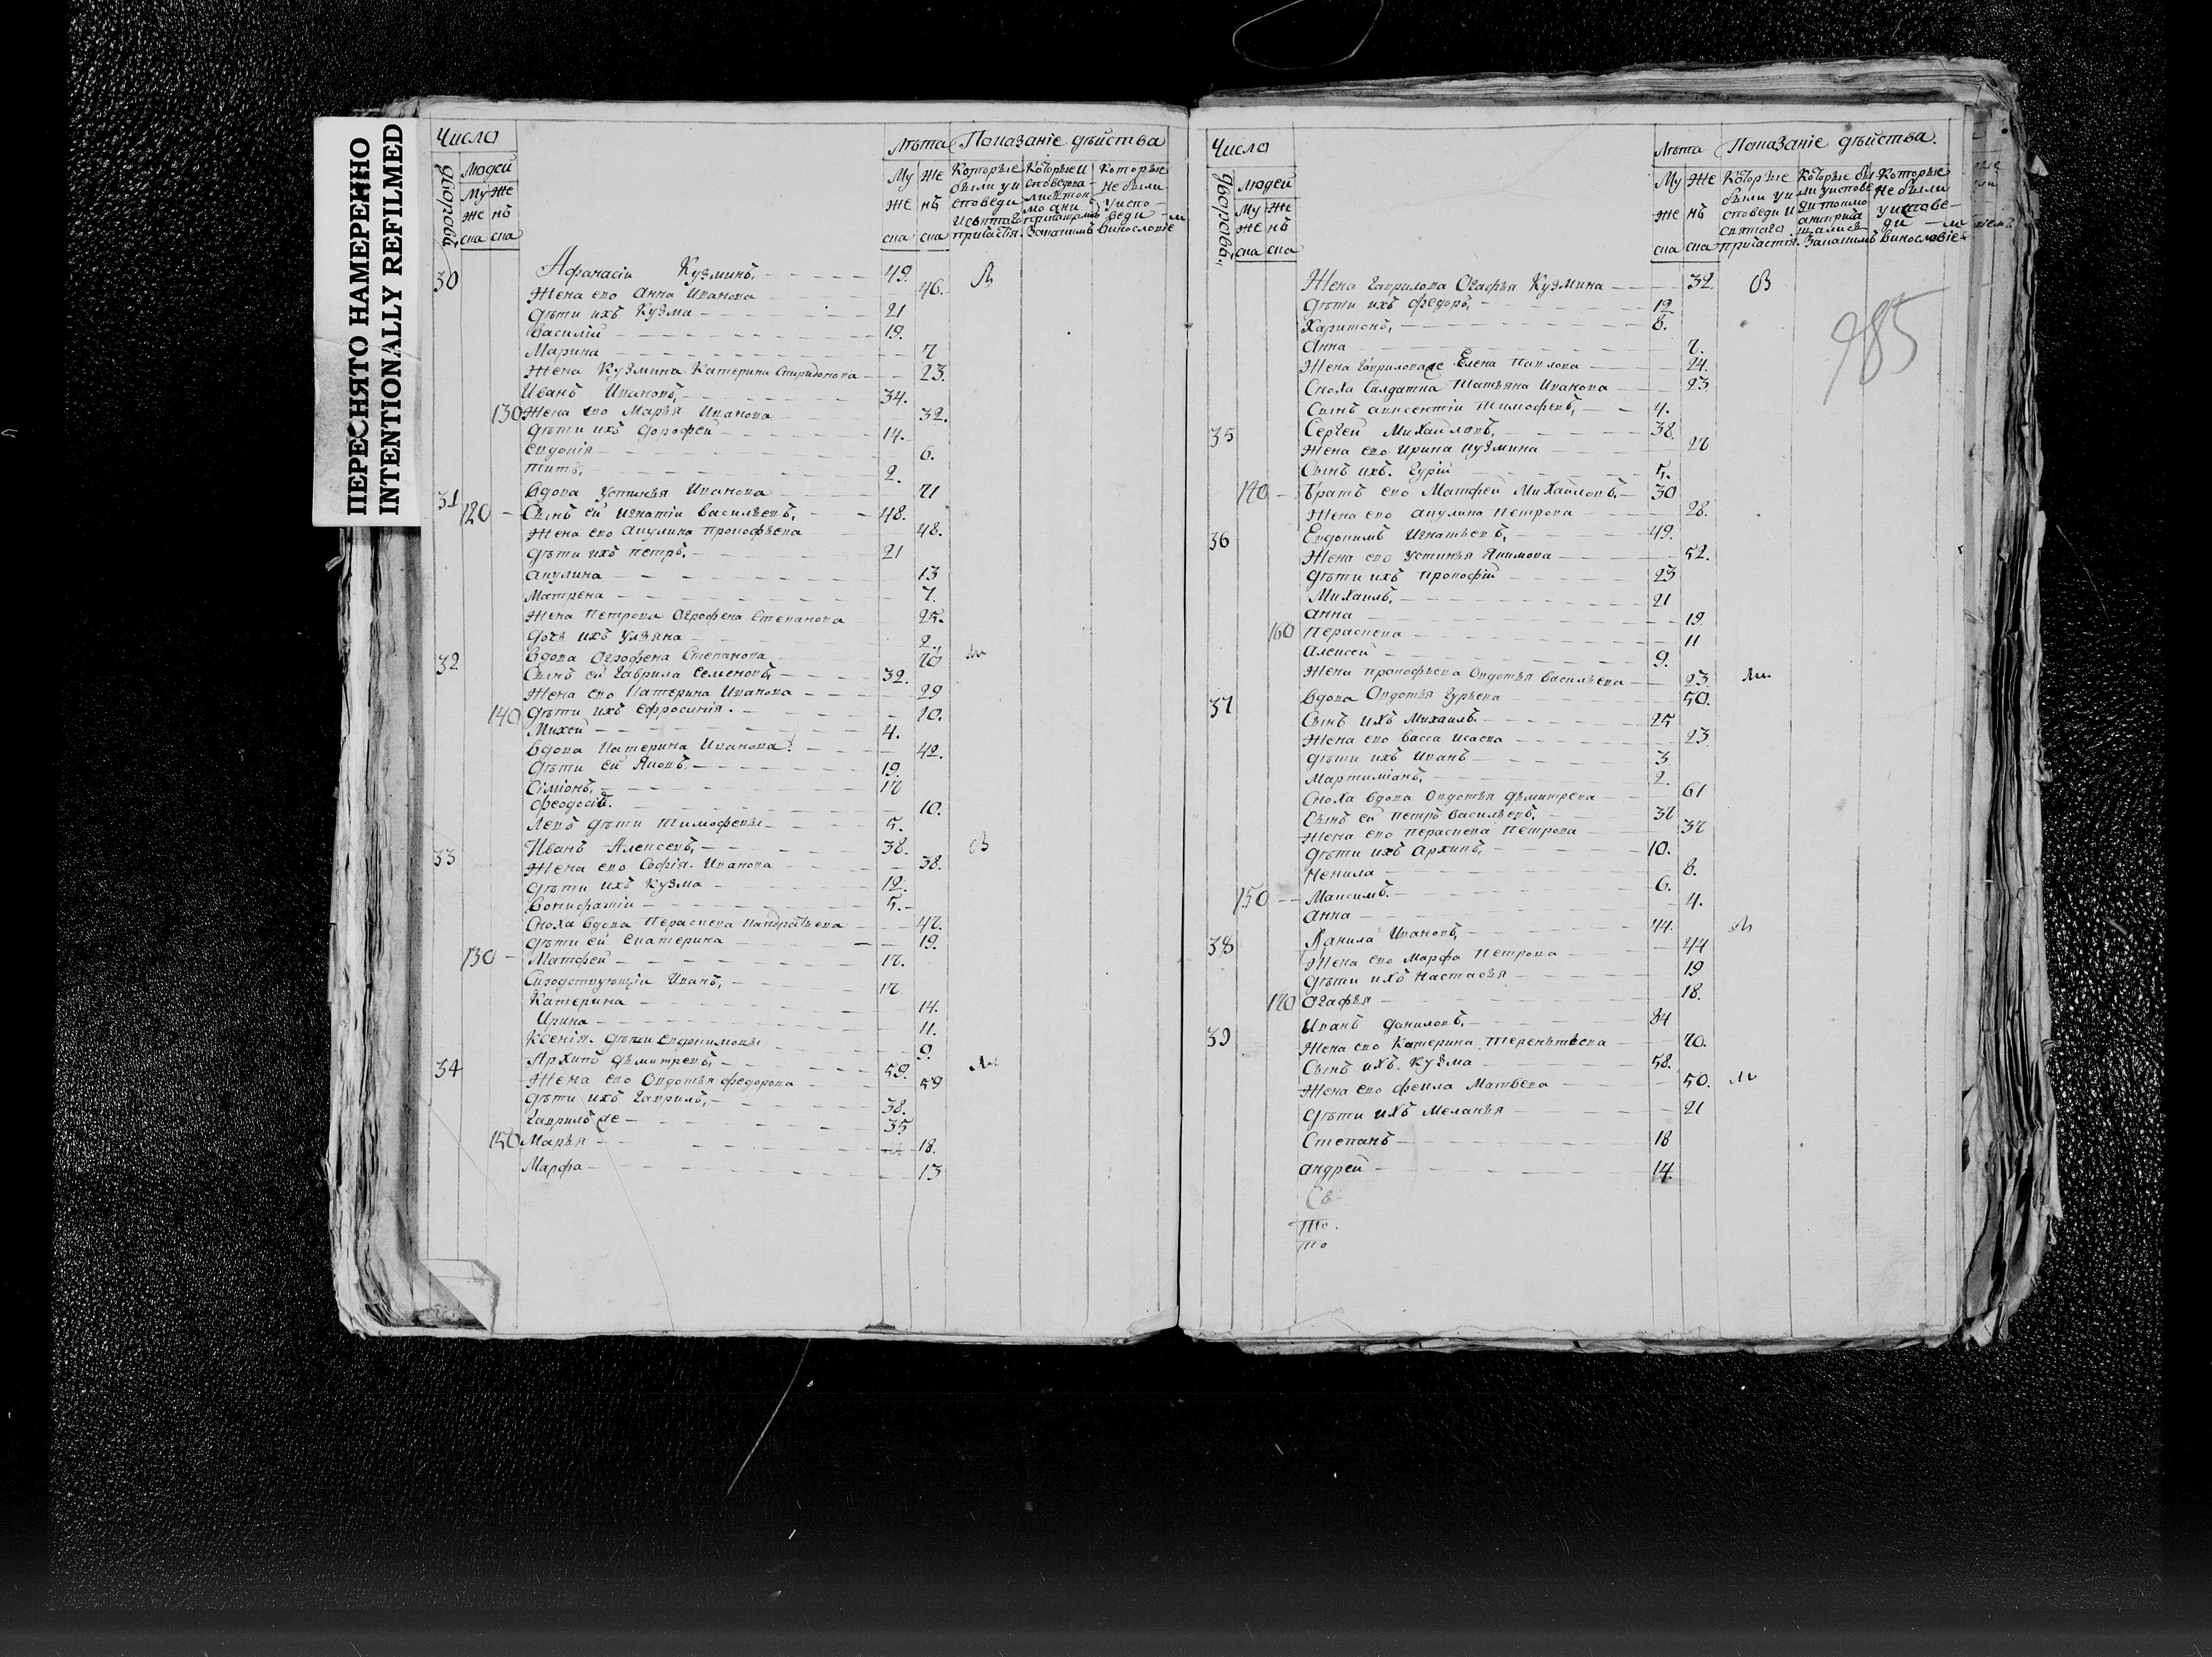 ПЕРЕСНЯТО НАМЕРЕННО
INTENTIONALLY REFILMED
Число
Лѣта Показаніе дѣйства
дворовъ
Людей
Му же
же нъ
ска ска
Му Же
же нъ
ска ска
Которые были у исповеди и святаго причастія
Которые не были
30 Афанасіи Кузминъ 49.
Жена его Анна Иванова 46.
Дѣти ихъ Кузма 21
Василій 19.
Марина 7
Жена Кузмина Катерина Спиридонова 23.
Иванъ Ивановъ 34.
130 Жена его Марья Иванова 32.
Дѣти ихъ Дорофей 14.
Евдокія 6.
Титъ 2.
31 Вдова Устинья Иванова 71
120 Сынъ ей Игнатіи Васильевъ 48.
Жена его Акулина Прокофьева 48.
Дѣти ихъ Петръ 21
Акулина 13
Матрена 7.
Жена Петрова Огрофена Степанова 25.
Дочь ихъ Ульяна 2.
32 Вдова Огрофена Степанова 70
Сынъ ей Гаврила Семеновъ 32.
Жена его Катерина Иванова 29
140 Дѣти ихъ Ефросинія. 10.
Михей 4.
Вдова Катерина Иванова 42.
Дѣти ей Яковъ 19.
Сіміонъ 17
Феодосій. 10.
Левъ дѣти Тимофевы 5.
33 Иванъ Алексевъ 38.
Жена его Софія Иванова 38.
Дѣти ихъ Кузма 12.
Вонифатіи 5.
Сноха вдова Пераскева Кандратьева 47.
Дѣти ей Екатерина 19.
130 Матфей 17.
Иванъ 17
Катерина 14.
Ирина 11.
Ксенія дѣти Евдокимовы 9.
34 Архипъ Дѣмитревъ 59.
Жена его Овдотья Федорова 59
Дѣти ихъ Гаврилъ 38.
Гаврилъ же 35
150 Марья 18.
Марфа 13
Число
Лѣта Показаніе дѣйства.
дворовъ
Людей
Му Же
же нъ
ска ска
Му Же
же нъ
ска ска
Которые были у исповеди и святаго причастія.
Которые не были
985
Жена Гаврилова Огафья Кузмина 32.
Дѣти ихъ Федоръ 12
Харитонъ 8.
Анна 7.
Жена Гаврилова же Елена Павлова 24.
Сноха Салдатка Татьяна Иванова 23
Сынъ Авксентіи Тимофевъ 4.
35 Сергей Михайловъ 38.
Жена его Ирина Кузмина 27
Сынъ ихъ Гурій 5.
140 Братъ его Матфей Михайловъ 30
Жена его Акулина Петрова 28.
36 Евдокимъ Игнатьевъ 49.
Жена его Устинья Якимова 52.
Дѣти ихъ Прокофій 23
Михаилъ 21
Анна 19
160 Пераскева 11
Алексей 9.
Жена Прокофьева Овдотья Васильева 23
37 Вдова Овдотья Гурьева 50.
Сынъ ихъ Михаилъ 25
Жена его Васса Исаева 23
Дѣти ихъ Иванъ 3
Мартиміанъ 2.
Сноха вдова Овдотья Дѣмитрева 61
Сынъ ей Петръ Васильевъ 37
Жена его Пераскева Петрова 37
Дѣти ихъ Архипъ 10.
Ненила 8.
150 Максимъ 6.
Анна 4.
38 Данила Ивановъ 44.
Жена его Марфа Петрова 44
Дѣти ихъ Настасья 19
170 Огафья 18.
39 Иванъ Даниловъ 84
Жена его Катерина Терентьева 70.
Сынъ ихъ Кузма 58.
Жена его Фекла Матвева 50.
Дѣти ихъ Меланья 21
Степанъ 18
Андрей 14.
Св
То.
То